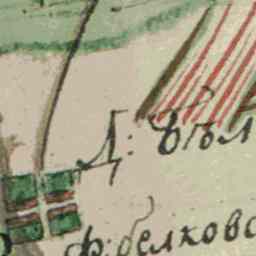 Д: Бѣл
ф: белково